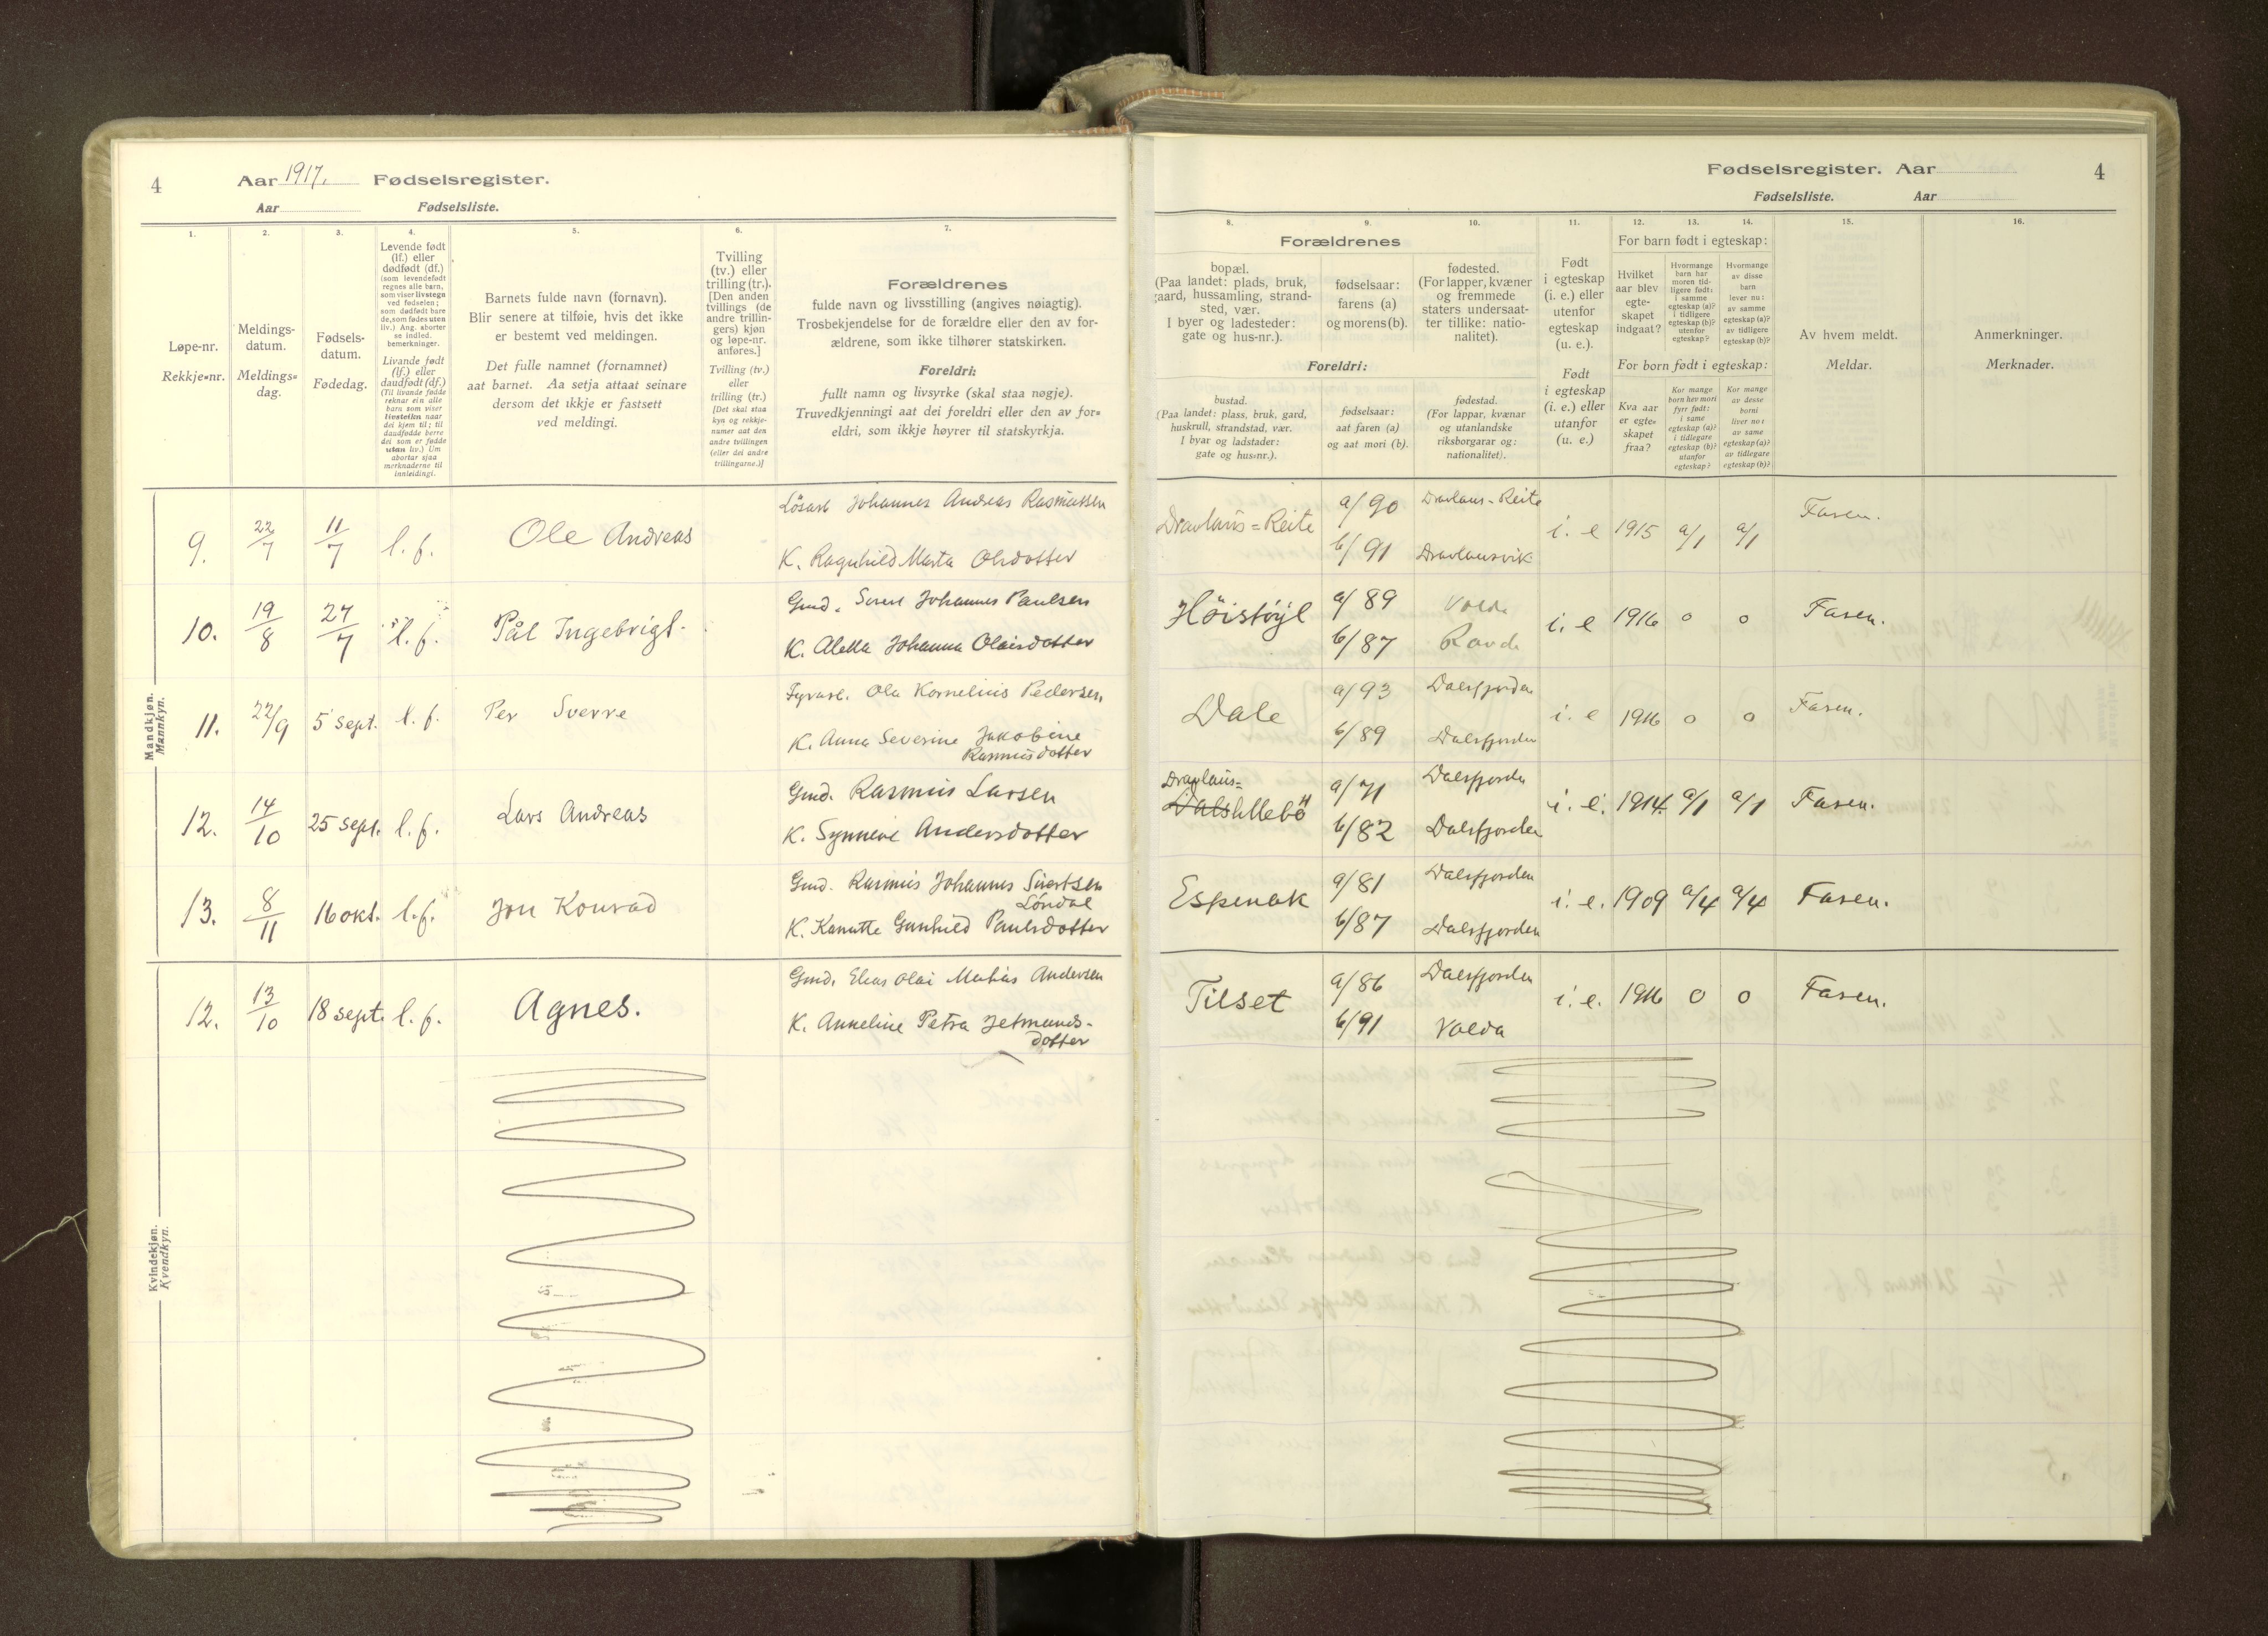 4
Aar 1917. Fødselsregister.
Aar Fødselsliste.
1.
2.
3.
4.
5.
6.
7.
Løpe-nr.
Rekkje-nr.
Meldings-
datum.
Meldings-
dag.
Fødsels-
datum.
Fødedag.
Levende født
(lf.) eller
dødfødt (df.)
(som levendefødt
regnes alle barn,
som viser livstegn
ved fødselen;
som dødfødt bare
de, som fødes uten
liv.) Ang. aborter
se indled.
bemerkninger.
Livande født
(lf.) eller
daudfødt (df.)
(Til livande fødde
reknar ein alle
barn som viser
livsteikn naar
dei kjem til; til
daudfødde berre
dei som er fødde
utan liv.) Um
abortar sjaa
merknaderne til
innleidingi.
Barnets fulde navn (fornavn).
Blir senere at tilføie, hvis det ikke
er bestemt ved meldingen.
Det fulle namnet (fornamnet)
aat barnet. Aa setja attaat seinare
dersom det ikkje er fastsett
ved meldingi.
Tvilling
(tv.) eller
trilling (tr.).
[Den anden
tvillings (de
andre trillin-
gers) kjøn
og løpe-nr.
anføres.]
Tvilling (tv.)
eller
trilling (tr.)
[Det skal staa
kyn og rekkje-
numer aat den
andre tvillingen
(eller dei andre
trillingarne.)]
Forældrenes
fulde navn og livsstilling (angives nøiagtig).
Trosbekjendelse for de forældre eller den av for-
ældrene, som ikke tilhører statskirken.
Foreldri:
fullt namn og livsyrke (skal staa nøgje).
Truvedkjenningi aat dei foreldri eller den av for-
eldri, som ikkje høyrer til statskyrkja.
Mandkjøn.
Mannkyn.
9. 22/7 11/7 l. f. Ole Andreas
Lösarb Johannes Andreas Rasmussen
K. Ragnhild Marta Olsdotter
10. 19/8 27/7 l. f. Pål Ingebrigt.
Gmd. Sivert Johannes Paulsen
K. Aletta Johanna Olaisdotter
11. 22/9 5 sept. l. f. Per Sverre
Fyrarb. Ola Kornelius Pedersen
K. Anna Severine Jakobine
Rasmusdotter
12. 14/10 25 sept. l. f. Lars Andreas
Gmd. Rasmus Larsen
K. Synneve Andersdotter
13. 8/11 16 okt. l. f. Jon Konrad
Gmd. Rasmus Johannes Sivertsen
Löndal
K. Kanutte Gunhild Paulsdotter
Kvindekjøn.
Kvendkyn.
12. 13/10 18 sept. l. f. Agnes.
Gmd. Elias Olai Matias Andersen
K. Anneline Petra Jetmunds-
dotter
Fødselsregister. Aar
4
Fødselsliste. Aar
8.
9.
10.
11.
12.
13.
14.
15.
16.
Forældrenes
bopæl.
(Paa landet: plads, bruk,
gaard, hussamling, strand-
sted, vær.
I byer og ladesteder:
gate og hus-nr.).
fødselsaar:
farens (a)
og morens (b).
fødested.
(For lapper, kvæner
og fremmede
staters undersaat-
ter tillike: natio-
nalitet).
Foreldri:
bustad.
(Paa landet: plass, bruk, gard,
huskrull, strandstad, vær.
I byar og ladstader:
gate og hus-nr.).
fødselsaar:
aat faren (a)
og aat mori (b).
fødestad.
(For lappar, kvænar
og utanlandske
riksborgarar og:
nationalitet).
Født
i egteskap
(i. e.) eller
utenfor
egteskap
(u. e.).
Født
i egteskap
(i. e.) eller
utanfor
(u. e.)
For barn født i egteskap:
Hvilket
aar blev
egte-
skapet
indgaat?
Hvormange
barn har
moren tid-
ligere født:
i samme
egteskap (a)?
i tidligere
egteskap (b)?
utenfor
egteskap?
Hvormange
av disse
barn
lever nu:
av samme
egteskap (a)?
av tidligere
egteskap (b)?
For born født i egteskap:
Kva aar
er egte-
skapet
fraa?
Kor mange
born hev mori
fyrr født:
i same
egteskap (a)?
i tidlegare
egteskap (b)?
utanfor
egteskap?
Kor mange
av desse
borni
liver no:
av same
egteskap (a)?
av tidlegare
egteskap (b)?
Av hvem meldt.
Meldar.
Anmerkninger.
Merknader.
Dravlaus=Reite a/90 Dravlaus-Reite i. e 1915 a/1 a/1 Faren.
b/91 Dravlausvik
Höistöyl a/89 Volda i. e 1916 0 0 Faren.
b/87 Rovde
Dale a/93 Dalsfjorden i. e 1916 0 0 Faren.
b/89 Dalsfjorden
Dravlaus=
Dalshllebö a/71 Dalsfjorden i. e. 1914. a/1 a/1 Faren.
b/82 Dalsfjorden
Espenak a/81 Dalsfjorden i. e. 1909 a/4 a/4 Faren.
b/87 Dalsfjorden
Tilset a/86 Dalsfjorden i. e. 1916 0 0 Faren.
b/91 Volda